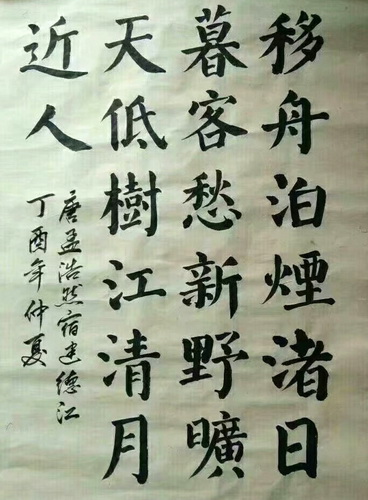 移舟泊煙渚日
暮客愁新野曠
天低樹江清月
近人
唐孟浩然宿建德江
丁酉年仲夏